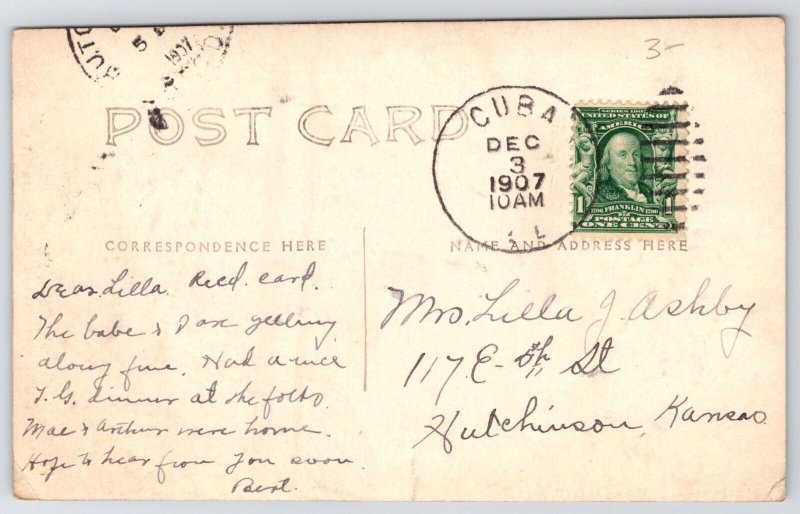 3-
HUTC
5
1907
POST CARD
CUBA
DEC
3
1907
10AM
ILL
SERIES 1902
UNITED STATES OF
AMERICA
1 1706 FRANKLIN 1790 1
POSTAGE
ONE CENT
CORRESPONDENCE HERE
NAME AND ADDRESS HERE
Dear Lilla Recd. card.
The babe & I are getting
along fine. Had a nice
T.G. dinner at the folks
Mae & Arthur were home.
Hope to hear from you soon.
Bert.
Mrs. Lilla J. Ashby
117 E- 5th St
Hutchinson, Kansas